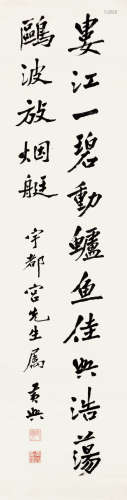 婁江一碧動鱸魚佳興浩蕩
鷗波放烟艇
宇都宮先生属 黄興